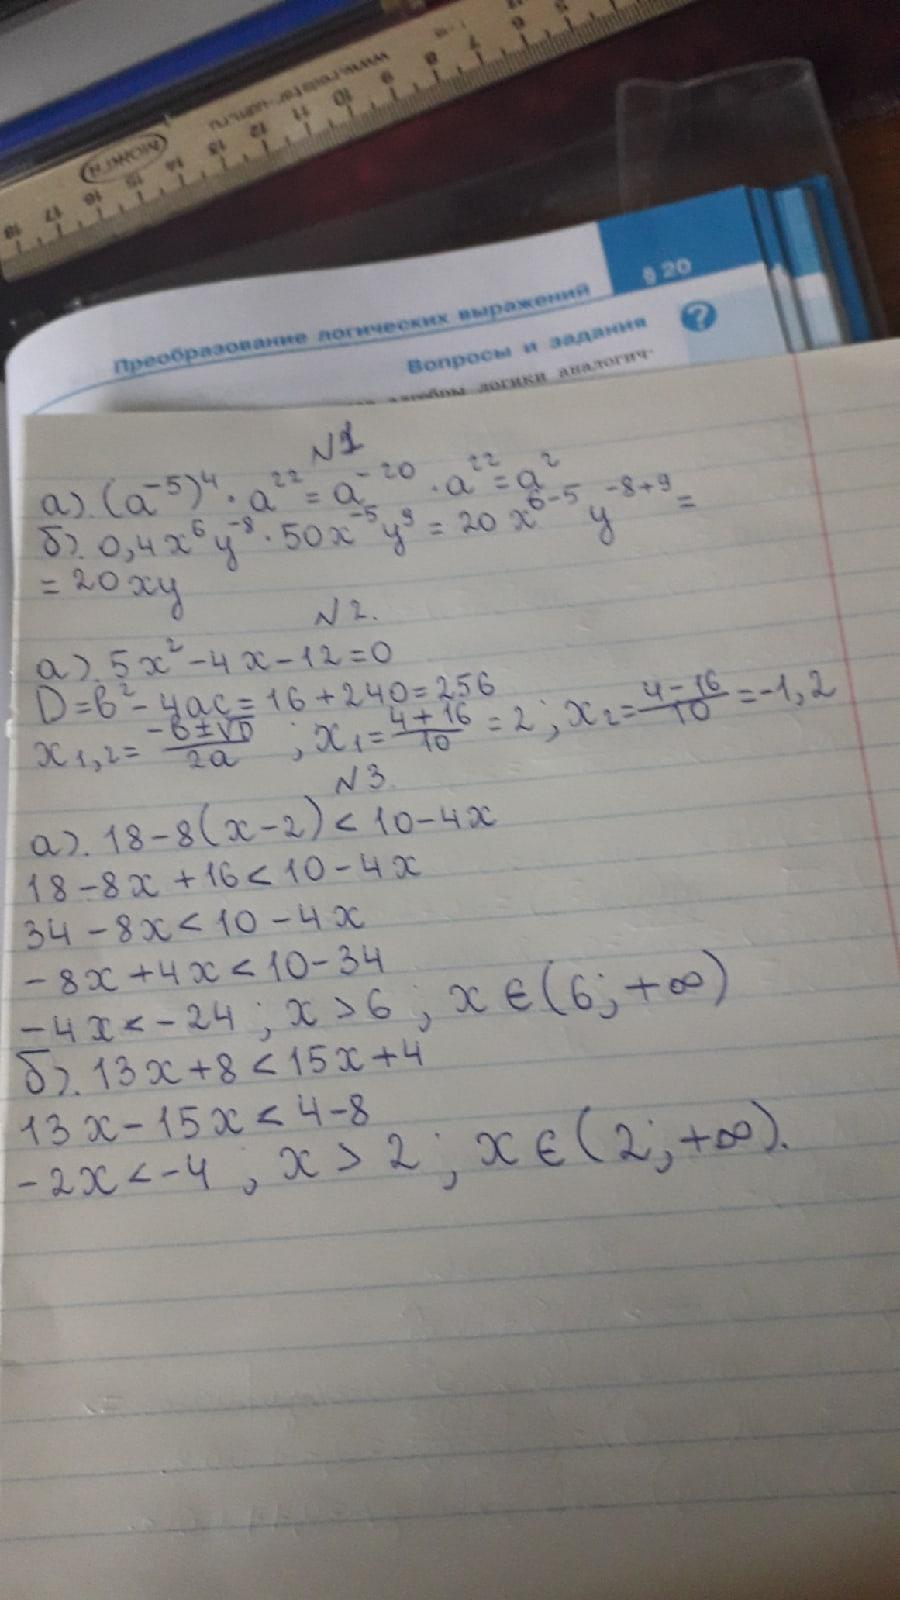 18 17 16 15 14 13 12 11 10 9 8 7 6 5
§ 20
Преобразование логических выражений
?
Вопросы и задания
алгебры логики аналогич-
N1
а). (a⁻⁵)⁴ · a²² = a⁻²⁰ · a²² = a²
б). 0,4x⁶y⁻⁸ · 50x⁻⁵y⁹ = 20x⁶⁻⁵ y⁻⁸⁺⁹ =
= 20xy
N2.
а). 5x² - 4x - 12 = 0
D = b² - 4ac = 16 + 240 = 256
x₁,₂ = (-b ± √D)/2a ; x₁ = (4 + 16)/10 = 2 ; x₂ = (4 - 16)/10 = -1,2
N3.
а). 18 - 8(x - 2) < 10 - 4x
18 - 8x + 16 < 10 - 4x
34 - 8x < 10 - 4x
-8x + 4x < 10 - 34
-4x < -24 ; x > 6 ; x ∈ (6; +∞)
б). 13x + 8 < 15x + 4
13x - 15x < 4 - 8
-2x < -4 ; x > 2 ; x ∈ (2; +∞).